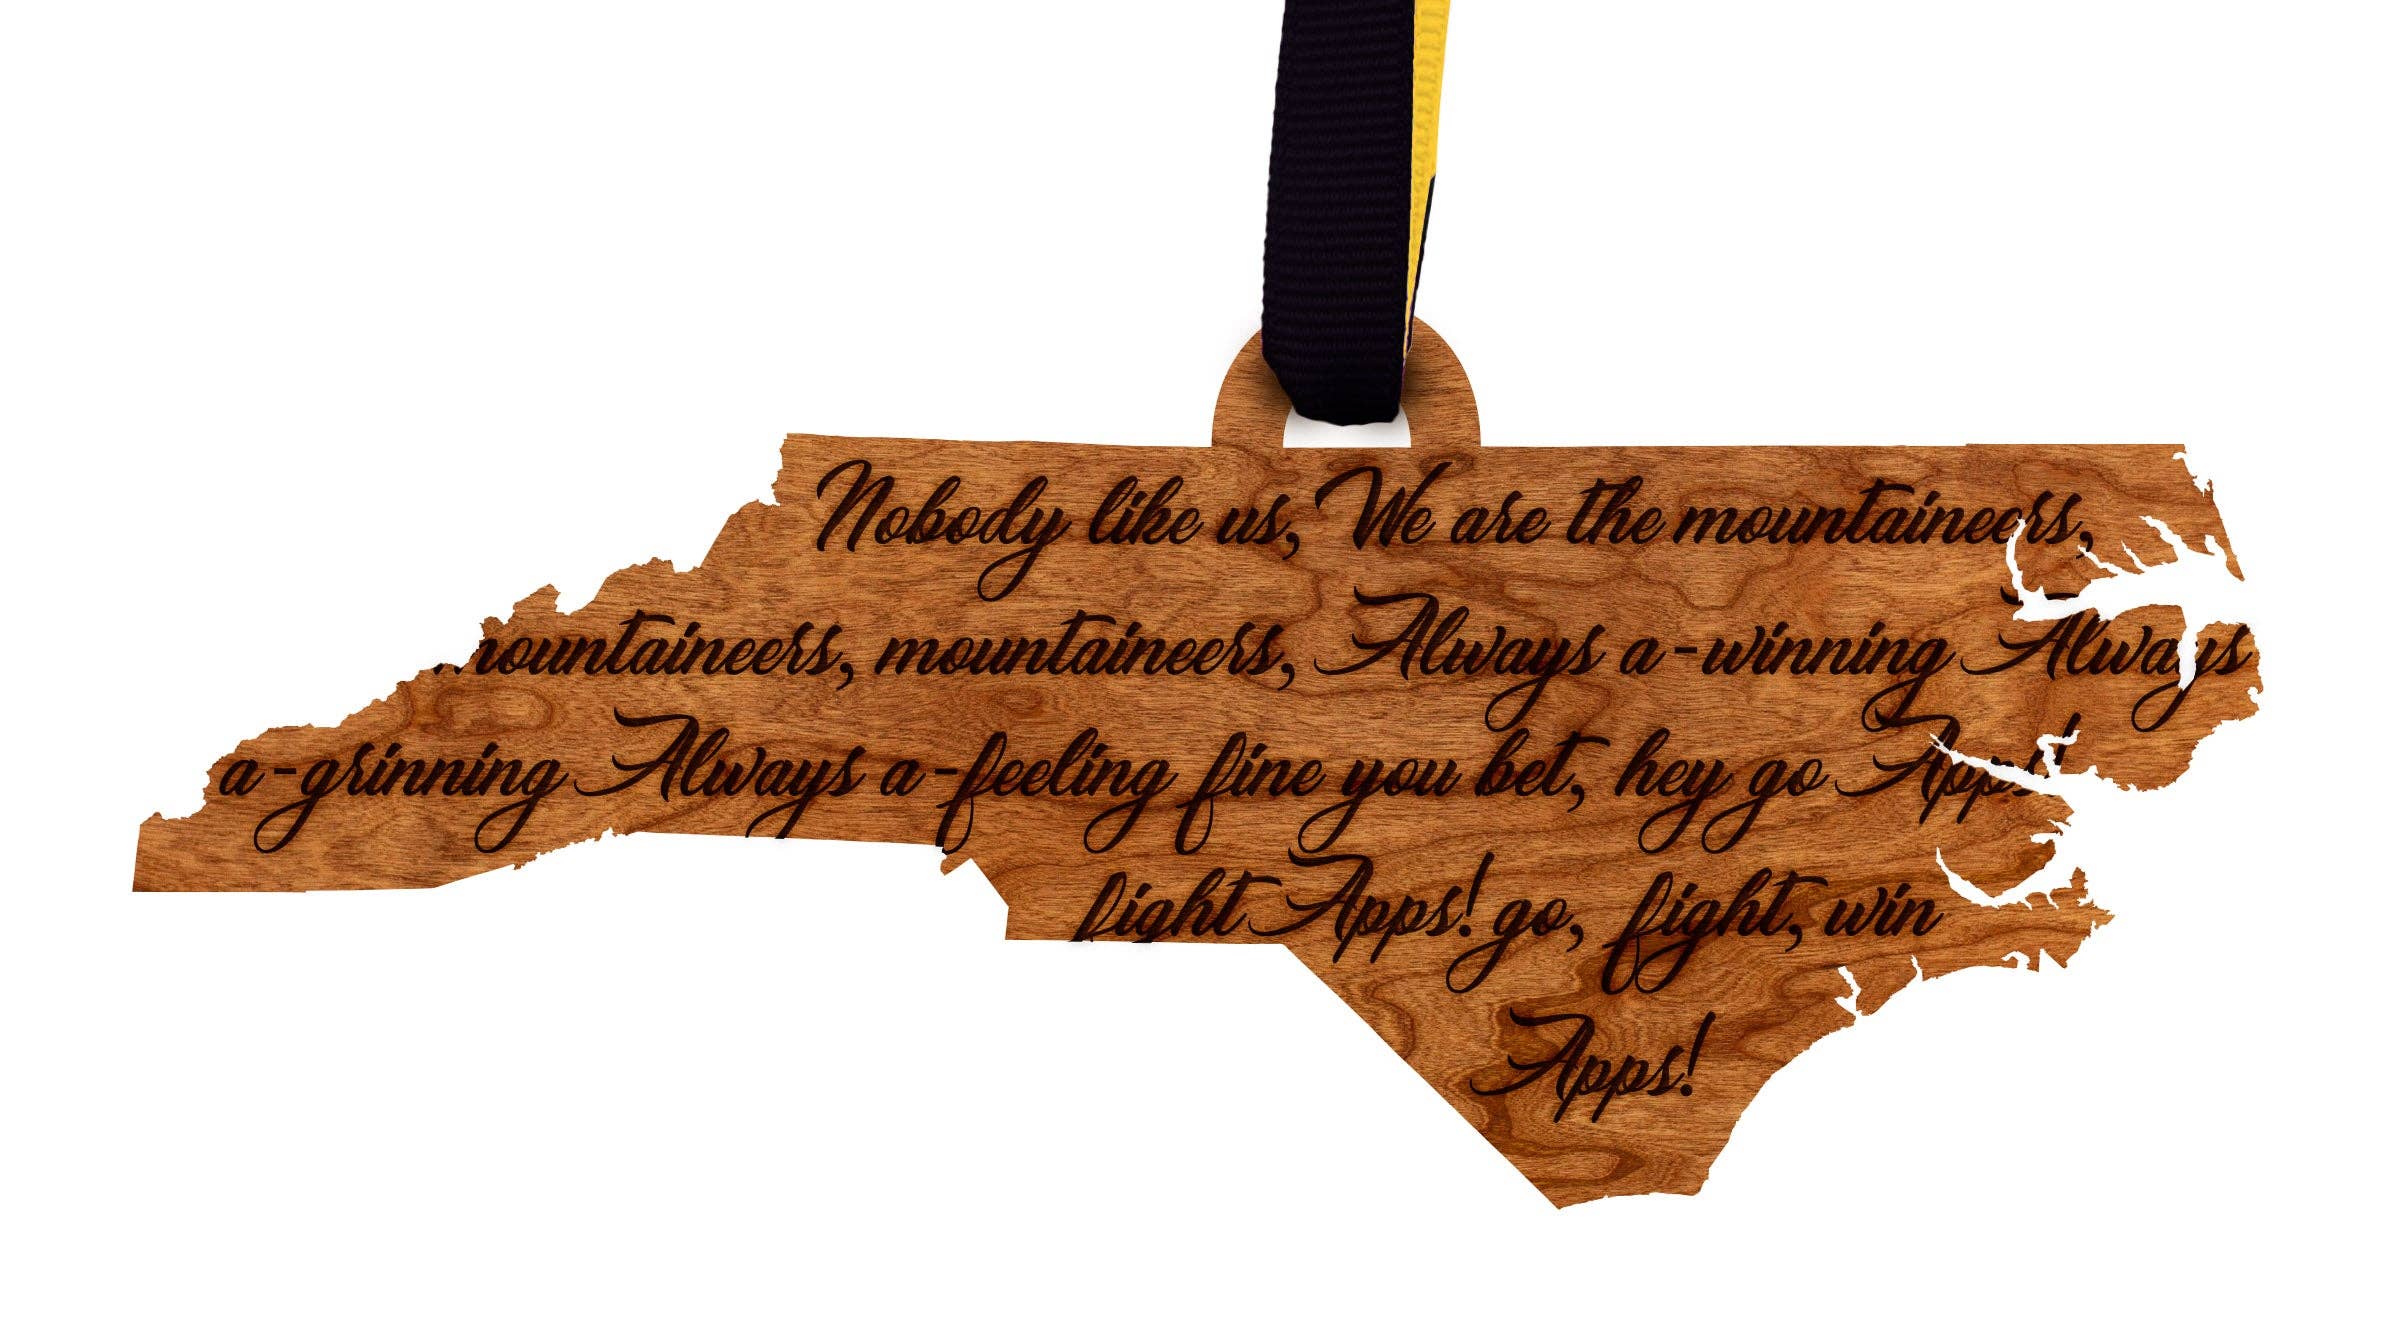 Nobody like us, We are the mountaineers,
mountaineers, mountaineers, Always a-winning Always
a-grinning Always a-feeling fine you bet, hey go Apps!
fight Apps! go, fight, win
Apps!